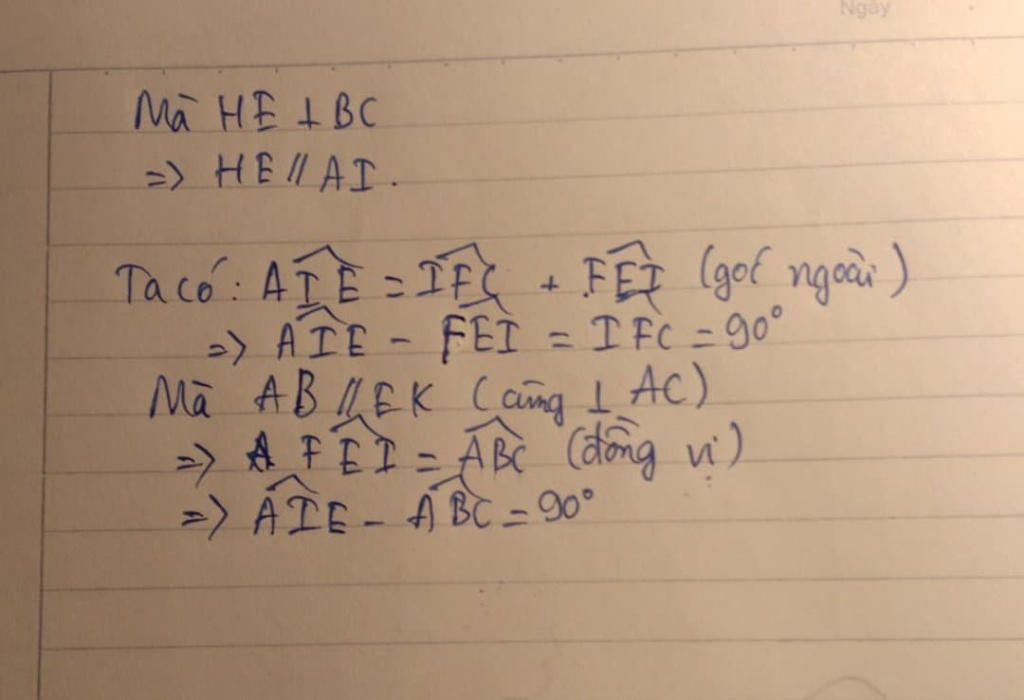 Ngày
Mà HE ⊥ BC
=> HE // AI.
Ta có: AIE^ = IFC^ + FEI^ (goc ngoài)
=> AIE^ - FEI^ = IFC^ = 90°
Mà AB // EK (cùng ⊥ AC)
=> A FEI^ = ABC^ (đồng vị)
=> AIE^ - ABC^ = 90°